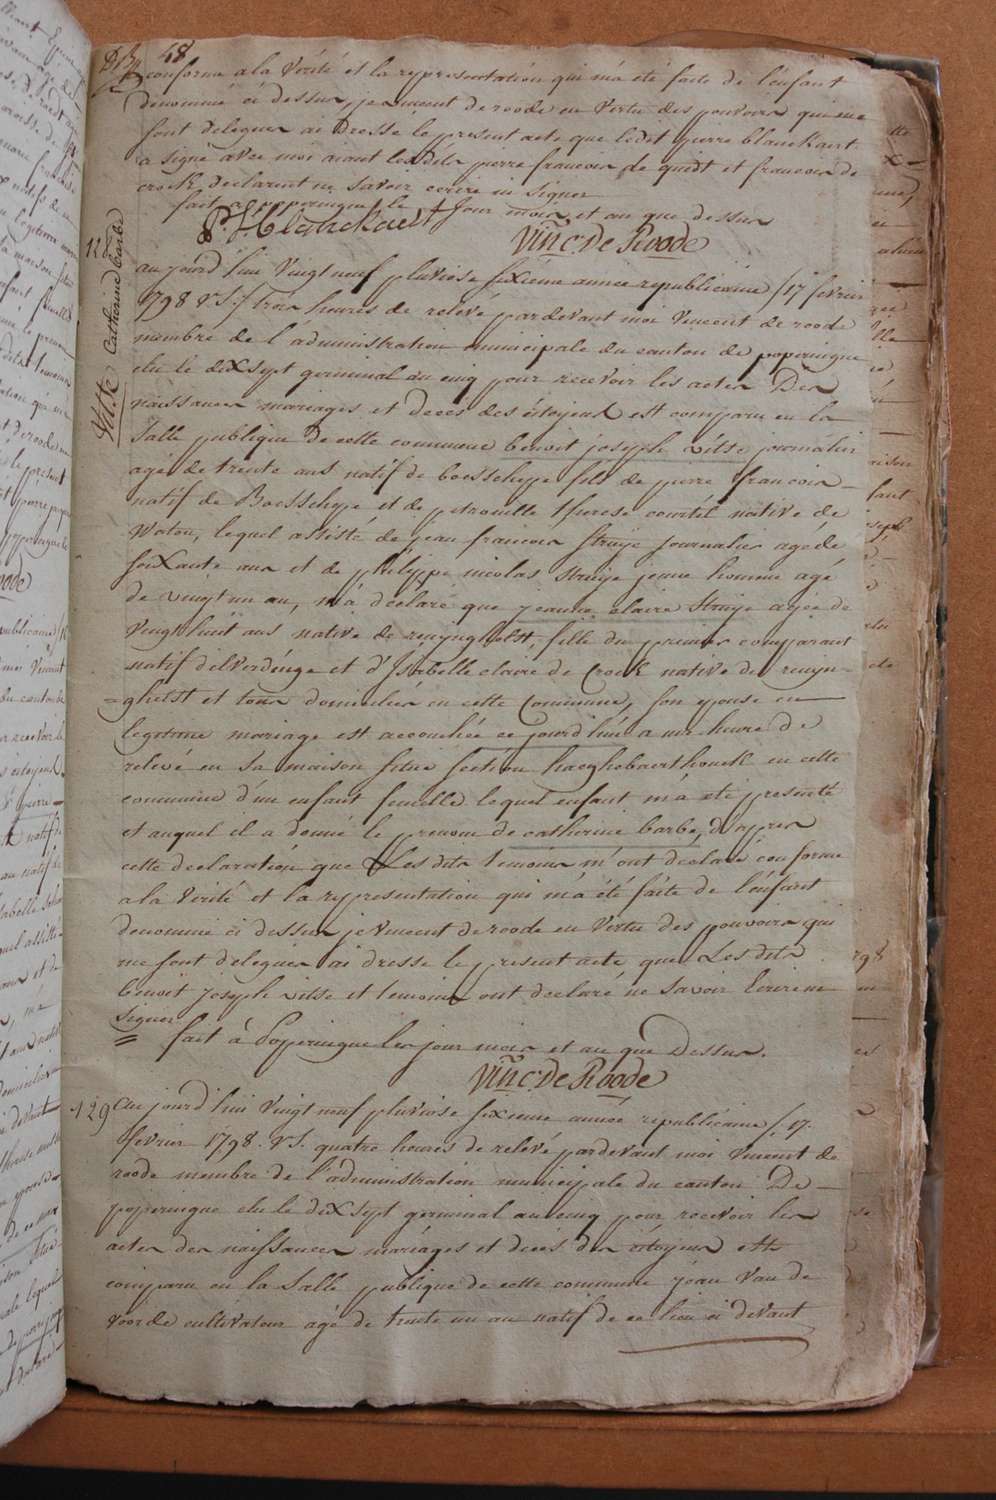 48
conforme a la Vérité et la representation qui m'a été faite de l'enfant
denommé ci dessus, je vincent de roode en Vertu des pouvoirs qui me
sont deleguer ai dressé le present acte que ledit pierre blanckaert
a signé avec moi aiant lesdits pierre francois de quidt et francois de
crock declarent ne savoir ecrire ni signer
fait a poperingue le Jour mois et an que dessus
P. H Blanckaert
Vin.c De Roode
128
Vitse Catherine Barbe
aujourd'hui Vingt neuf pluviose sixieme année republicaine /17 fevrier
1798 v.s./ trois heures de relevé pardevant moi Vincent de roode
membre de l'administration municipale du canton de poperingue
elu le dix sept germinal an cinq pour recevoir les actes Des
naissances mariages et deces des citoyens est comparu en la
Salle publique de cette commune benoit joseph vitse journalier
agé de trente ans natif de boeschepe fils de pierre francois
natif de Boeschepe et de petronille therese courtil native de
Watou, lequel assisté de jean francois Struye journalier agé de
soixante ans et de philippe nicolas Struye jeune homme agé
de vingt un an, m'a declaré que jeanne claire Struye agée de
Vengt huit ans native de renynghelst, fille du premier comparant
natif d'elverdinge et d'Isabelle claire de Crock native de renyn-
=ghelst et tous domiciliés en cette Commune, son epouse en
legitime mariage est accouchée ce jourd'hui a une heure de
relevé en sa maison situé section haeghebaerthouck en cette
commune d'un enfant femelle lequel enfant m'a été presenté
et auquel il a donné le prenom de catherine barbe, d'apres
cette declaration que Les dits temoins m'ont declaré conforme
a la Verité et la representation qui m'a été faite de l'enfant
denommé ci dessus je vincent de roode en Vertu des pouvoirs qui
me sont deleguer ai dresse le present acte que Lesdits
benoit Joseph vitse et temoins ont declaré ne savoir Ecrire ni
Signer
= fait à Poperingue les jour mois et an que Dessus.
Vin.c De Roode
129
Aujourd'hui Vingt neuf pluviose sixieme année republicaine / 17.
fevrier 1798. v.s. quatre heures de relevé pardevant moi Vincent de
roode membre de l'administration municipale du canton De
poperingue elu le dix sept germinal an cinq pour recevoir les
actes des naissances mariages et decés des citoyens est
comparu en la Salle publique de cette commune jean Van de
voorde cultivateur agé de trente un an natif de ce lieu ci devant